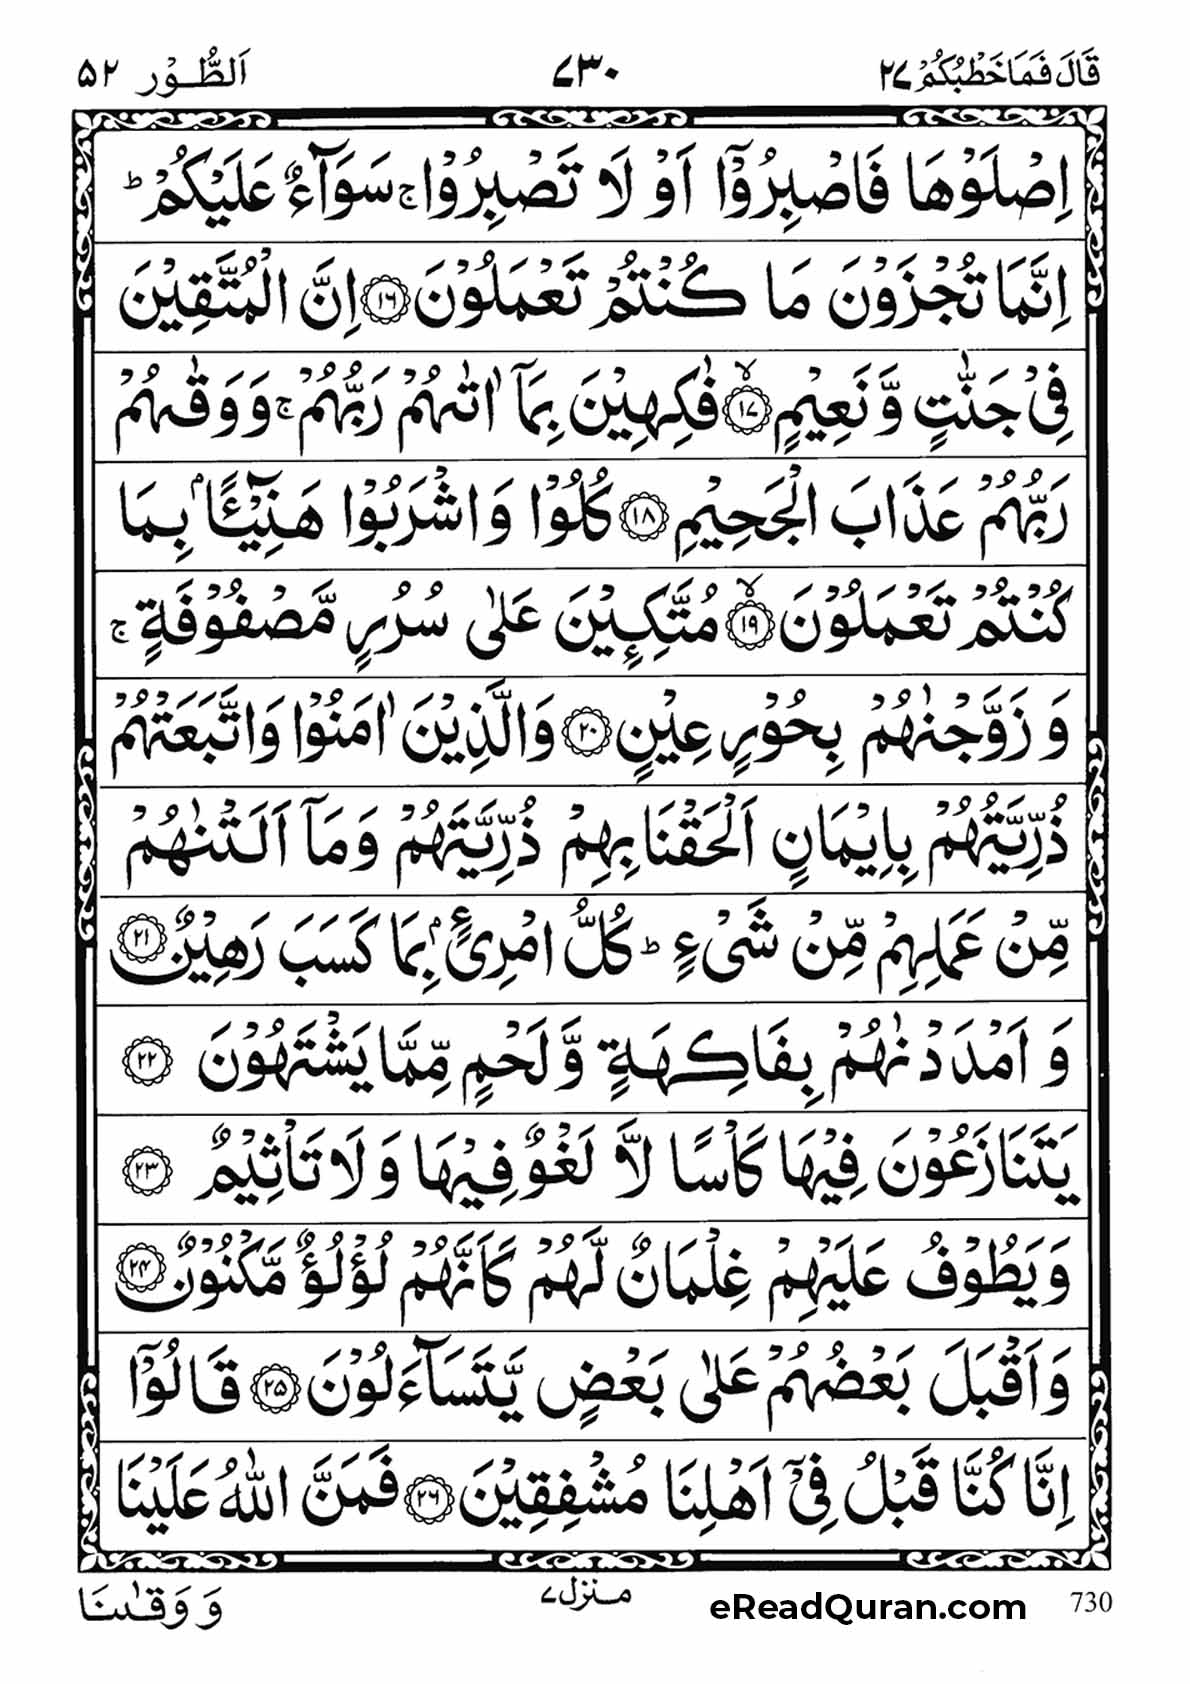 قَالَ فَمَا خَطْبُكُمْ ٢٧ ٧٣٠ اَلطُّوْر ٥٢
اِصْلَوْهَا فَاصْبِرُوْۤا اَوْ لَا تَصْبِرُوْا ۚ سَوَآءٌ عَلَيْكُمْ ؕ
اِنَّمَا تُجْزَوْنَ مَا كُنْتُمْ تَعْمَلُوْنَ ﴿١٦﴾ اِنَّ الْمُتَّقِيْنَ
فِيْ جَنّٰتٍ وَّ نَعِيْمٍ ﴿١٧﴾ ۙ فٰكِهِيْنَ بِمَاۤ اٰتٰىهُمْ رَبُّهُمْ ۚ وَ وَقٰىهُمْ
رَبُّهُمْ عَذَابَ الْجَحِيْمِ ﴿١٨﴾ كُلُوْا وَ اشْرَبُوْا هَنِيْٓـًٔۢا بِمَا
كُنْتُمْ تَعْمَلُوْنَ ﴿١٩﴾ ۙ مُتَّكِـِٕيْنَ عَلٰى سُرُرٍ مَّصْفُوْفَةٍ ۚ
وَ زَوَّجْنٰهُمْ بِحُوْرٍ عِيْنٍ ﴿٢٠﴾ وَ الَّذِيْنَ اٰمَنُوْا وَ اتَّبَعَتْهُمْ
ذُرِّيَّتُهُمْ بِاِيْمَانٍ اَلْحَقْنَا بِهِمْ ذُرِّيَّتَهُمْ وَ مَاۤ اَلَتْنٰهُمْ
مِّنْ عَمَلِهِمْ مِّنْ شَيْءٍ ؕ كُلُّ امْرِئٍۭ بِمَا كَسَبَ رَهِيْنٌ ﴿٢١﴾
وَ اَمْدَدْنٰهُمْ بِفَاكِهَةٍ وَّ لَحْمٍ مِّمَّا يَشْتَهُوْنَ ﴿٢٢﴾
يَتَنَازَعُوْنَ فِيْهَا كَاْسًا لَّا لَغْوٌ فِيْهَا وَ لَا تَاْثِيْمٌ ﴿٢٣﴾
وَ يَطُوْفُ عَلَيْهِمْ غِلْمَانٌ لَّهُمْ كَاَنَّهُمْ لُؤْلُؤٌ مَّكْنُوْنٌ ﴿٢٤﴾
وَ اَقْبَلَ بَعْضُهُمْ عَلٰى بَعْضٍ يَّتَسَآءَلُوْنَ ﴿٢٥﴾ قَالُوْۤا
اِنَّا كُنَّا قَبْلُ فِيْۤ اَهْلِنَا مُشْفِقِيْنَ ﴿٢٦﴾ فَمَنَّ اللّٰهُ عَلَيْنَا
730 eReadQuran.com منزل ٧ وَ وَقٰىنَا